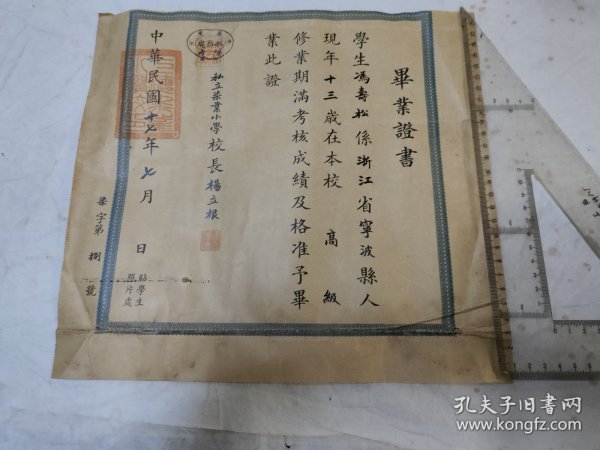 畢業證書
學生馮壽松係浙江省寧波縣人
現年十三歲在本校高級
修業期滿考核成績及格准予畢
業此證
私立柒業小學校長楊立根
中華民國十七年七月 日
字第捌號
貼學生
照片處
孔夫子旧书网
www.kongfz.com